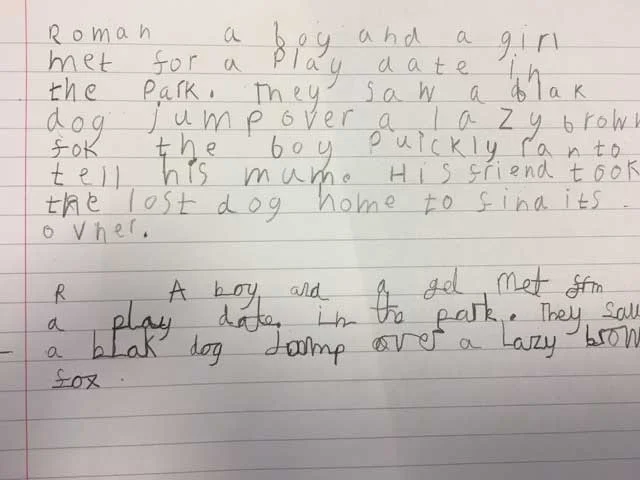 Roman a boy and a girl
met for a play date in
the park. They saw a blak
dog jump over a lazy brown
fok the boy puickly ran to
tell his mum. His friend took
the lost dog home to find its
ovner.
R A boy and a gel met frm
a play date. in the park. They saw
a blak dog Joomp over a lazy brow
fox.